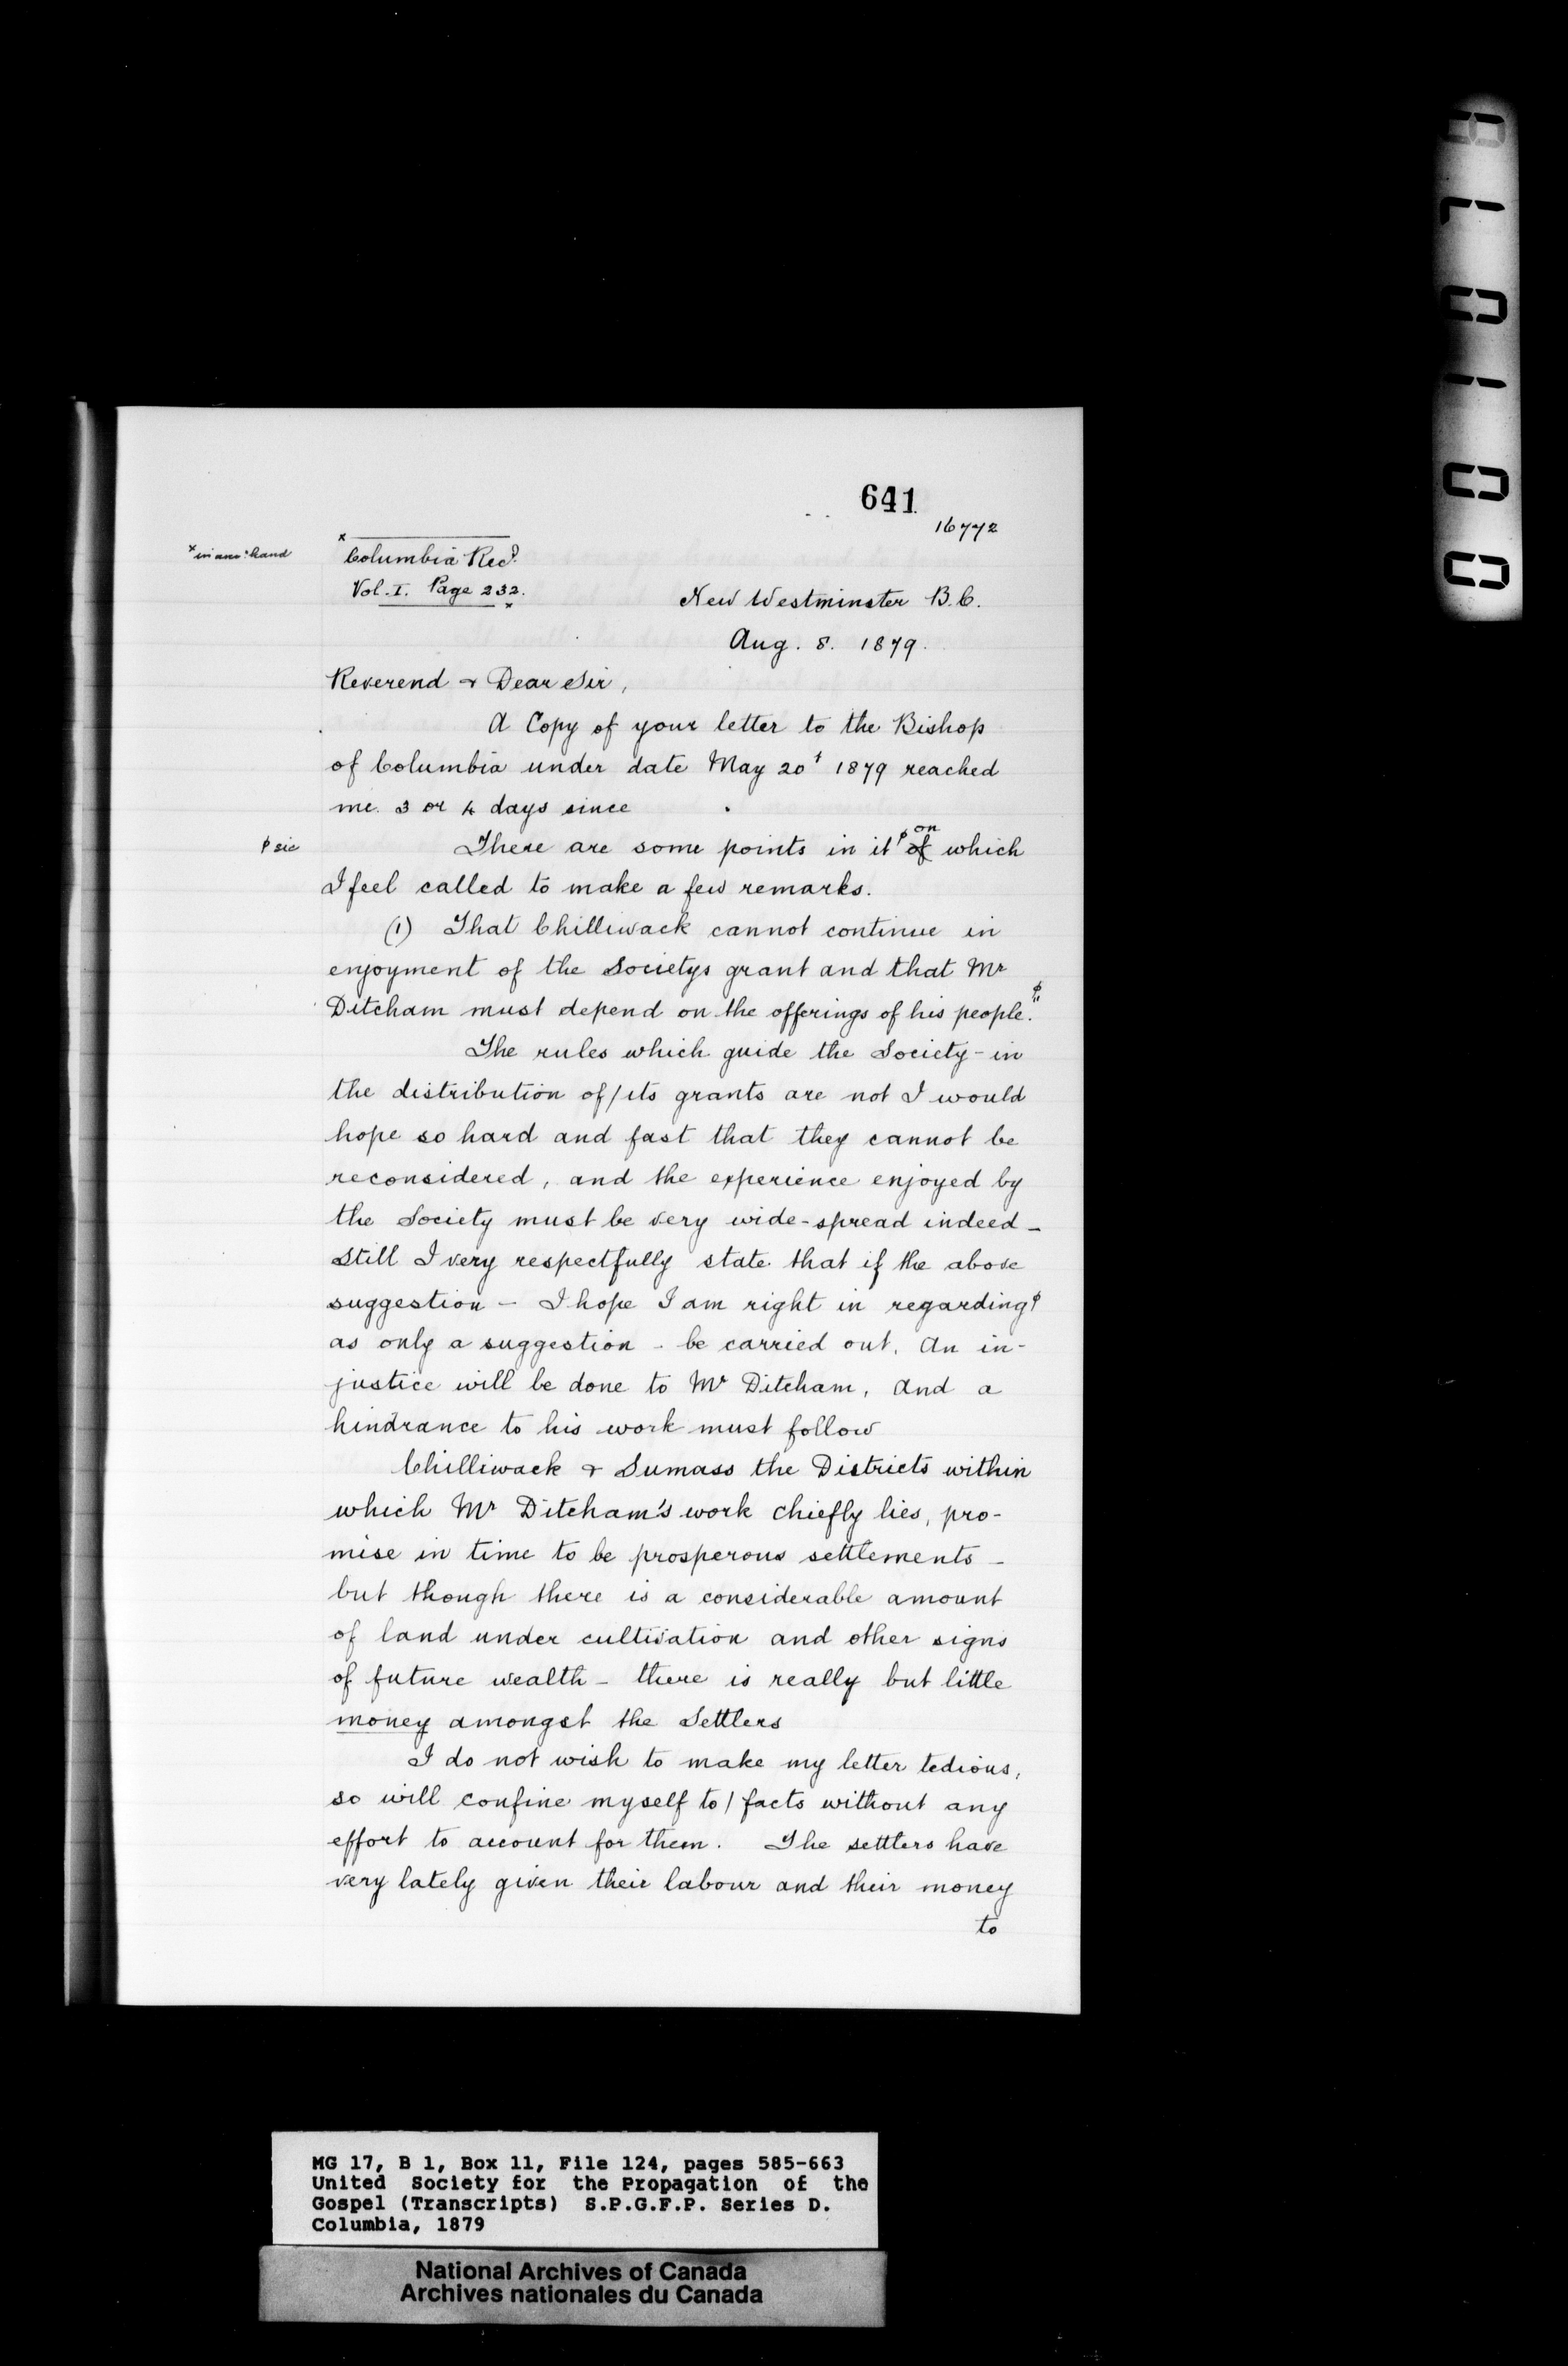 641
16772
x in ano: hand
x
Columbia Recd.
Vol. I. Page 232.
x
New Westminster B.C.
Aug. 8. 1879.
Reverend & Dear Sir,
A Copy of your letter to the Bishop
of Columbia under date May 20t 1879 reached
me. 3 or 4 days since
ꞩ sic
There are some points in it ꞩ of on which
I feel called to make a few remarks.
(1) That Chilliwack cannot continue in
enjoyment of the Societys grant and that Mr
Ditcham must depend on the offerings of his people." ꞩ
The rules which guide the Society - in
the distribution of / its grants are not I would
hope so hard and fast that they cannot be
reconsidered, and the experience enjoyed by
the Society must be very wide-spread indeed -
Still I very respectfully state that if the above
suggestion - I hope I am right in regarding ꞩ
as only a suggestion - be carried out. An in-
justice will be done to Mr Ditcham, and a
hindrance to his work must follow
Chilliwack & Sumass the Districts within
which Mr Ditcham's work chiefly lies, pro-
mise in time to be prosperous settlements -
but though there is a considerable amount
of land under cultivation and other signs
of future wealth - there is really but little
money amongst the Settlers
I do not wish to make my letter tedious,
so will confine myself to / facts without any
effort to account for them. The settlers have
very lately given their labour and their money
to
MG 17, B 1, Box 11, File 124, pages 585-663
United Society for the Propagation of the
Gospel (Transcripts) S.P.G.F.P. Series D.
Columbia, 1879
National Archives of Canada
Archives nationales du Canada